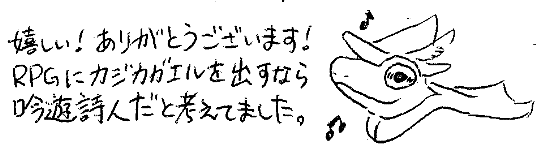 嬉しい！ありがとうございます！
RPGにカジカガエルを出すなら
吟遊詩人だと考えてました。